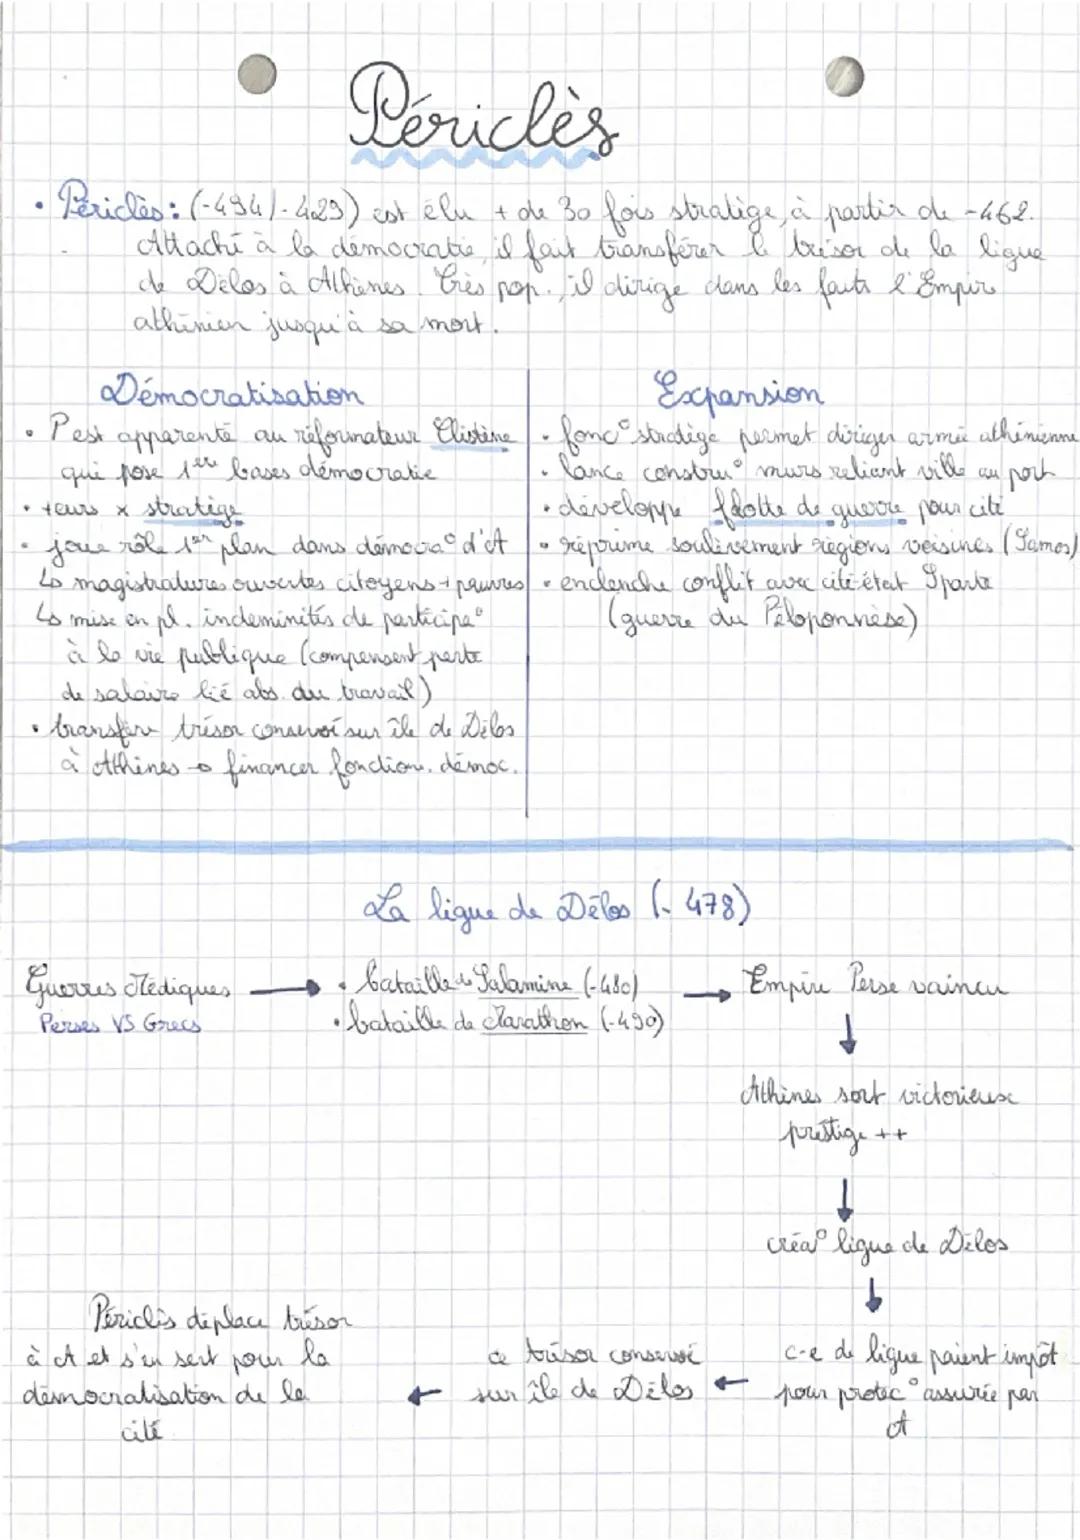 Périclès
• Périclès : (-494/-429) est élu + de 30 fois stratège, à partir de -462.
Attaché à la démocratie, il fait transférer le trésor de la ligue
de Délos à Athènes. Très pop., il dirige dans les faits l'Empire
athénien jusqu'à sa mort.
Démocratisation
• P est apparenté au réformateur Clistène
qui pose 1ères bases démocratie
• +eurs x stratège
• joue rôle 1er plan dans démocra° d'A
↳ magistratures ouvertes citoyens + pauvres
↳ mise en pl. indeminités de participa°
à la vie publique (compensent perte
de salaire lié abs. du travail)
• transfère trésor conservé sur île de Délos
à Athènes → financer fonction. démoc.
Expansion
• fonc° stratège permet diriger armée athénienne
• lance constru° murs reliant ville au port
• développe flotte de guerre pour cité
• réprime soulèvement régions voisines (Samos)
• enclenche conflit avec cité-état Sparte
(guerre du Péloponnèse)
La ligue de Délos (-478)
Guerres Médiques → • bataille de Salamine (-480) → Empire Perse vaincu
Perses VS Grecs • bataille de Marathon (-490)
↓
Athènes sort victorieuse
prestige ++
↓
créa° ligue de Délos
↓
c-e de ligue paient impôt
pour protec° assurée par
A
← ce trésor conservé
sur île de Délos
← Périclès déplace trésor
à A et s'en sert pour la
démocratisation de la
cité